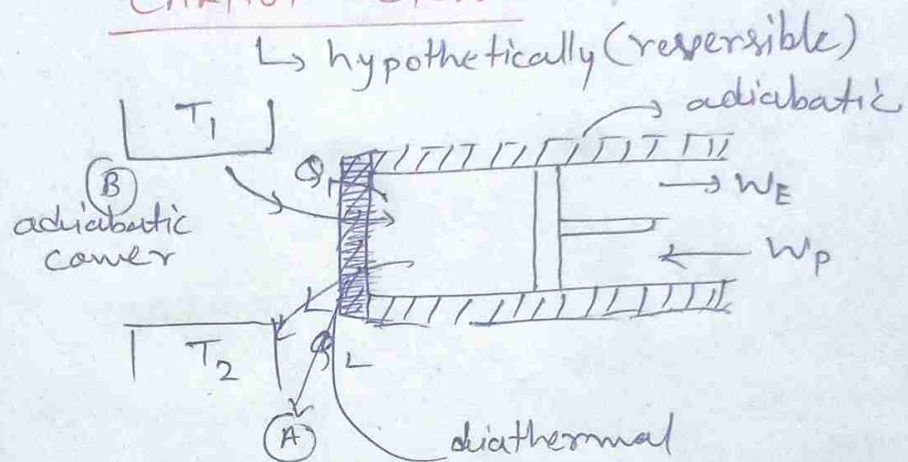 ↳ hypothetically (respersible)
T1
adiabatic
B
Q1
WE
adiabatic
cower
Wp
T2
QL
A
diathermal